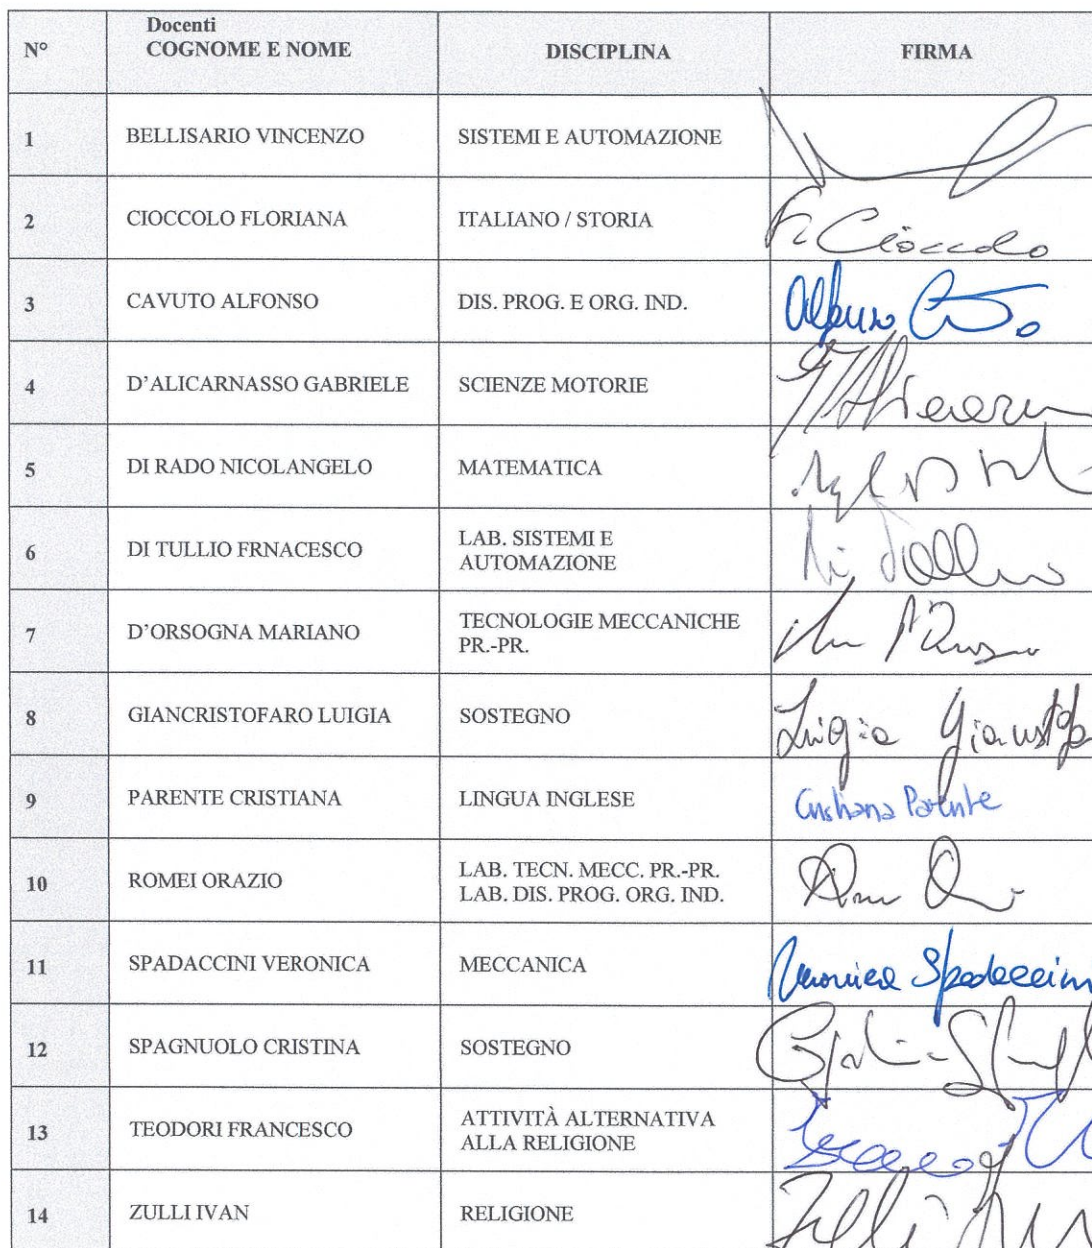 N°
Docenti
COGNOME E NOME
DISCIPLINA
FIRMA
1
BELLISARIO VINCENZO
SISTEMI E AUTOMAZIONE
2
CIOCCOLO FLORIANA
ITALIANO / STORIA
F. Cioccolo
3
CAVUTO ALFONSO
DIS. PROG. E ORG. IND.
Alfonso
4
D’ALICARNASSO GABRIELE
SCIENZE MOTORIE
5
DI RADO NICOLANGELO
MATEMATICA
6
DI TULLIO FRNACESCO
LAB. SISTEMI E
AUTOMAZIONE
Di Tullio
7
D’ORSOGNA MARIANO
TECNOLOGIE MECCANICHE
PR.-PR.
8
GIANCRISTOFARO LUIGIA
SOSTEGNO
Luigia
9
PARENTE CRISTIANA
LINGUA INGLESE
Cristiana Parente
10
ROMEI ORAZIO
LAB. TECN. MECC. PR.-PR.
LAB. DIS. PROG. ORG. IND.
11
SPADACCINI VERONICA
MECCANICA
Veronica Spadaccini
12
SPAGNUOLO CRISTINA
SOSTEGNO
13
TEODORI FRANCESCO
ATTIVITÀ ALTERNATIVA
ALLA RELIGIONE
14
ZULLI IVAN
RELIGIONE
Zulli